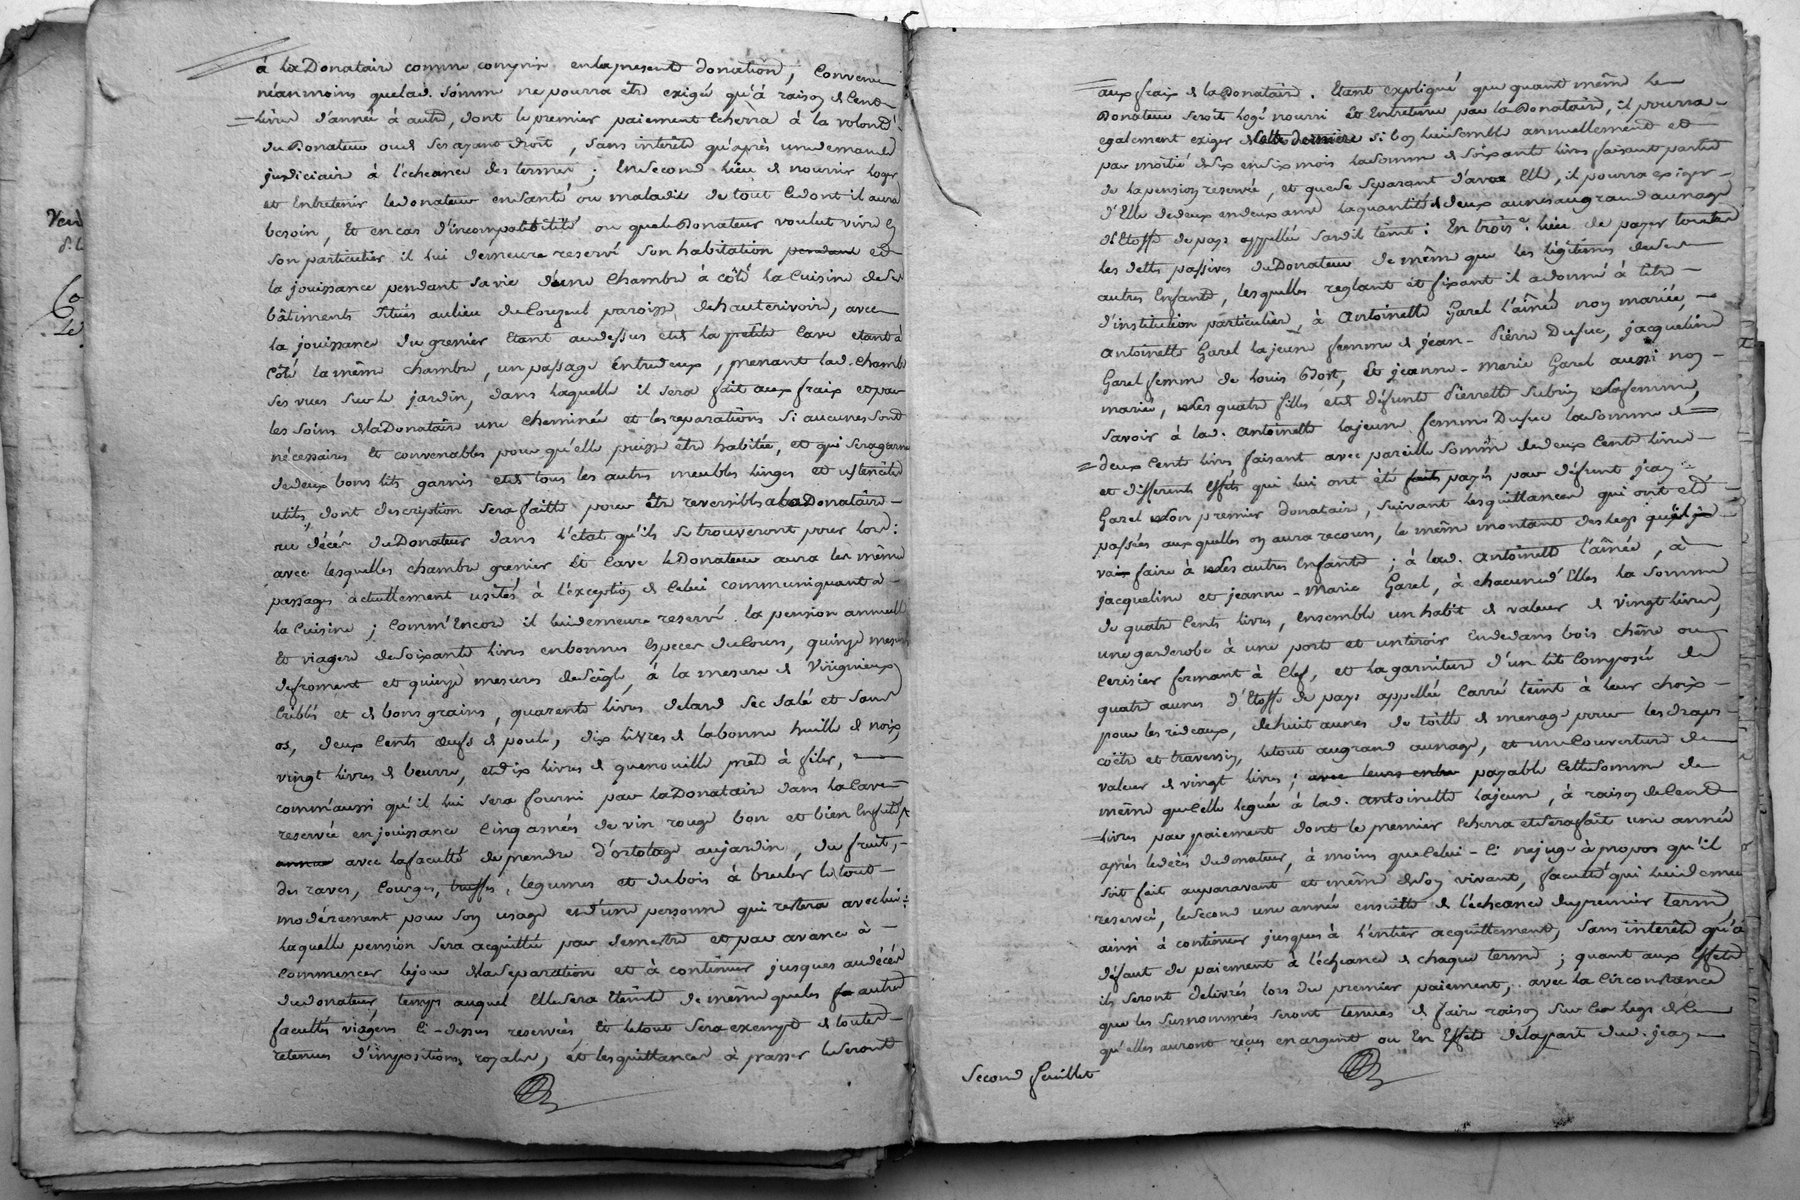 à la Donataire comme compris en la presente donation, Convenu
néanmoins que lad. somme ne pourra être exigée qu'à raison de Cent
livres d'année à autre, dont le premier paiement écherra à la volonté
du Donateur ou de ses ayant droit, sans intérêts qu'après une demande
judiciaire à l'écheance des termes ; En Second lieu de nourrir loger
et Entretenir le donateur en santé ou maladie de tout ce dont il aura
besoin, Et en cas d'incompatibilité ou que le Donateur voulut vivre en
son particulier il lui demeure reservé son habitation pendant et
la jouissance pendant sa vie d'une Chambre à côté la Cuisine de ses
bâtiments Situés au lieu de paroisse de hauterivoire, avec
la jouissance du grenier Etant au dessus et de la petite Cave etant à
Côté la même chambre, un passage Entredeux, prenant lad. Chambre
ses vues sur le jardin, dans laquelle il sera fait aux fraix et par
les soins de la Donataire une cheminée et les reparations si aucunes sont
nécessaires Et convenables pour qu'elle puisse être habitée, et qui sera garnie
de deux bons lits garnis et de tous les autres meubles linges et ustenciles
utiles, dont description sera faitte pour être reversibles à la Donataire
au décès du Donateur dans l'état qu'ils se trouveront pour lors :
avec lesquelles chambre grenier Et Cave le Donateur aura les même
passages actuellement usités à l'exception de Celui communiquant à
la Cuisine ; Comm'Encore il lui demeure reservé la pension annuelle
Et viagere de soixante livres en bonnes Especes du Cours, quinze mesures
de froment et quinze mesures de Seigle, à la mesure de Virignieux
Criblés et de bons grains, quarente livres de lard sec salé et sans
os, deux Cents œufs de poule, dix livres de la bonne huille de noix,
vingt livres de beurre, et dix livres de quenouille prête à filer,
comm'aussi qu'il lui sera fourni par la Donataire dans la Cave
reservée en jouissance Cinq asnées de vin rouge bon et bien
avec la faculté de prendre d'ortolage au jardin, du fruit,
des raves, Courges, truffes, legumes et du bois à bruler le tout
modérement pour son usage et d'une personne qui restera avec lui :
laquelle pension sera acquittée par semestre et par avance à
Commencer le jour de la Separation et à continuer jusques au décés
du donateur, temps auquel Elle sera Eteinte de même que les autres
facultés viageres Ci-dessus reservées Et le tout sera exempt de toutes
retenues d'impositions royales, et les quittances à passer le seront
aux fraix de la Donataire. Etant expliqué que quant même le
Donateur seroit logé nourri Et Entretenu par la Donataire, il pourra
egalement exiger de cette derniere si bon lui semble annuellement et
par moitié de six en six mois la somme de soixante livres faisant partie
de la pension reservée, et que se separant d'avec Elle, il pourra exiger
d'Elle de deux en deux ans la quantité de deux aunes au grand aunage
d'Etoffe de pays appellée teint : En trois.e lieu de payer toutes
les dettes passives du Donateur de même que les légitimes de ses
autres Enfants, lesquelles reglant et fixant il a donné à titre
d'institution particuliere, à Antoinette Garel l'ainée non mariée,
Antoinette Garel la jeune femme de jean-Pierre Dufuc, jacqueline
Garel femme de louis Odost, Et jeanne-Marie Garel aussi non
mariée, ses quatre filles et de défunte Pierrette Subrin sa femme,
Savoir à lad. Antoinette la jeune femme Dufuc la somme de
deux Cents livres faisant avec pareille somme de deux Cents livres
et differents Effets qui lui ont été faits payés par défunt jean
Garel son premier donataire, suivant les quittances qui ont été
passées auxquelles on aura recours, le même montant des legs
faire à ses autres Enfants ; à lad. Antoinette l'ainée, à
jacqueline et jeanne-Marie Garel, à chacune d'Elles la somme
de quatre Cents livres, Ensemble un habit de valeur de vingt livres,
une garderobe à une porte et un tiroir au dedans bois chêne ou
Cerisier fermant à Clef, et la garniture d'un lit Composée de
quatre aunes d'Etoffe de pays appellée Carré teint à leur choix
pour les rideaux, de huit aunes de toille de menage pour les draps
coëtre et traversin, le tout au grand aunage, et une Couverture de
valeur de vingt livres ; payable Cette somme de
même que Celle leguée à lad. Antoinette la jeune, à raison de Cent
livres par paiement dont le premier écherra et sera fait une année
après le décès du donateur, à moins que Celui-Ci ne juge à propos qu'il
soit fait auparavant et même de son vivant, faculté qui lui demeure
reservée, le second une année ensuitte de l'écheance du premier terme
ainsi à continuer jusques à l'entier acquittement, sans intérêts qu'à
défaut de paiement à l'écheance de chaque terme ; quant aux Effets
ils seront délivrés lors du premier paiement, avec la Circonstance
que les susnommées seront tenues de faire raison sur les legs de Ce
qu'elles auront reçus en argent ou En Effets de la part dud. jean
Second feuillet